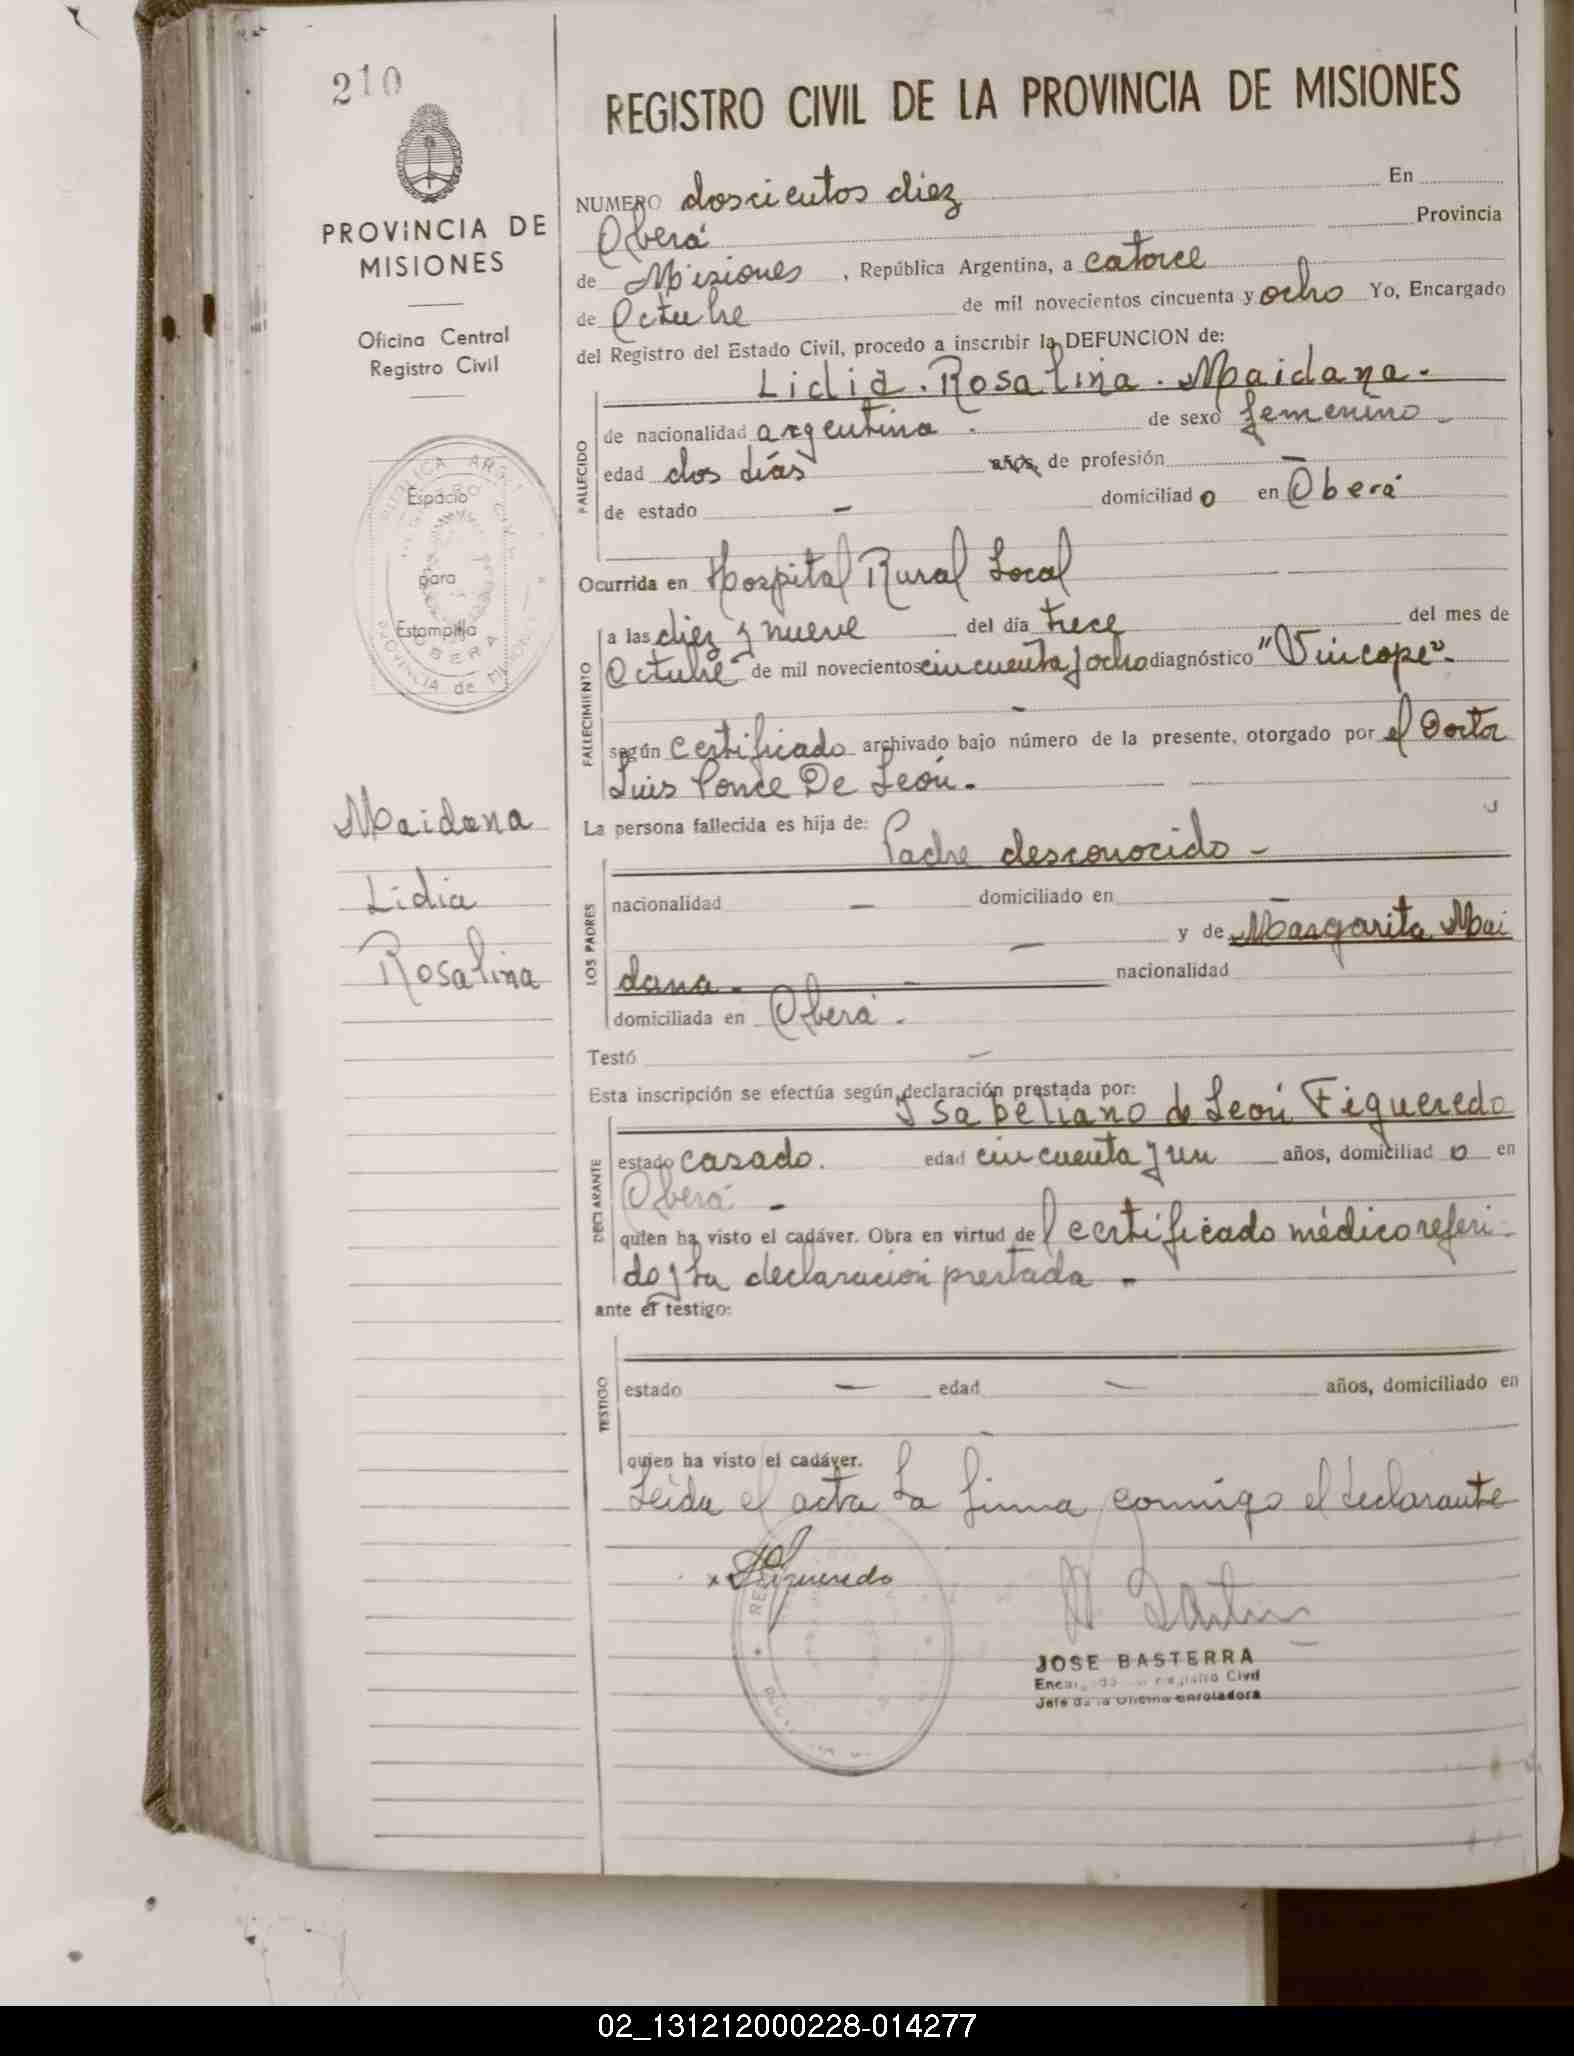 210
PROVINCIA DE
MISIONES
Oficina Central
Registro Civil
Espacio
para
Estampilla
OBERA
PROVINCIA de
Maidana
Lidia
Rosalina
REGISTRO CIVIL DE LA PROVINCIA DE MISIONES
NUMERO doscientos diez En
Oberá Provincia
de Misiones, República Argentina, a catorce
de Octubre de mil novecientos cincuenta y ocho Yo, Encargado
del Registro del Estado Civil, procedo a inscribir la DEFUNCION de:
Lidia. Rosalina. Maidana.
FALLECIDO
de nacionalidad argentina. de sexo femenino
edad dos días años, de profesión —
de estado — domiciliado en Oberá
Ocurrida en Hospital Rural Local
FALLECIMIENTO
a las diez y nueve del día trece del mes de
Octubre de mil novecientos cincuenta y ocho diagnóstico "Sincope".
según certificado archivado bajo número de la presente, otorgado por el Doctor
Luis Ponce De León.
La persona fallecida es hija de:
Padre desconocido -
LOS PADRES
nacionalidad — domiciliado en —
— y de Margarita Mai
dana. — nacionalidad
domiciliada en Oberá.
Testó —
Esta inscripción se efectúa según declaración prestada por:
Isabeliano de León Figueredo
DECLARANTE
estado casado. edad cincuenta y un años, domiciliado en
Oberá -
quien ha visto el cadáver. Obra en virtud del certificado médico referi-
do y la declaración prestada -
ante el testigo:
TESTIGO
estado — edad — años, domiciliado en
quien ha visto el cadáver.
Leída el acta la firma conmigo el declarante
x Figueredo
JOSE BASTERRA
Encargado Registro Civil
Jefe de la Oficina enroladora
02_131212000228-014277